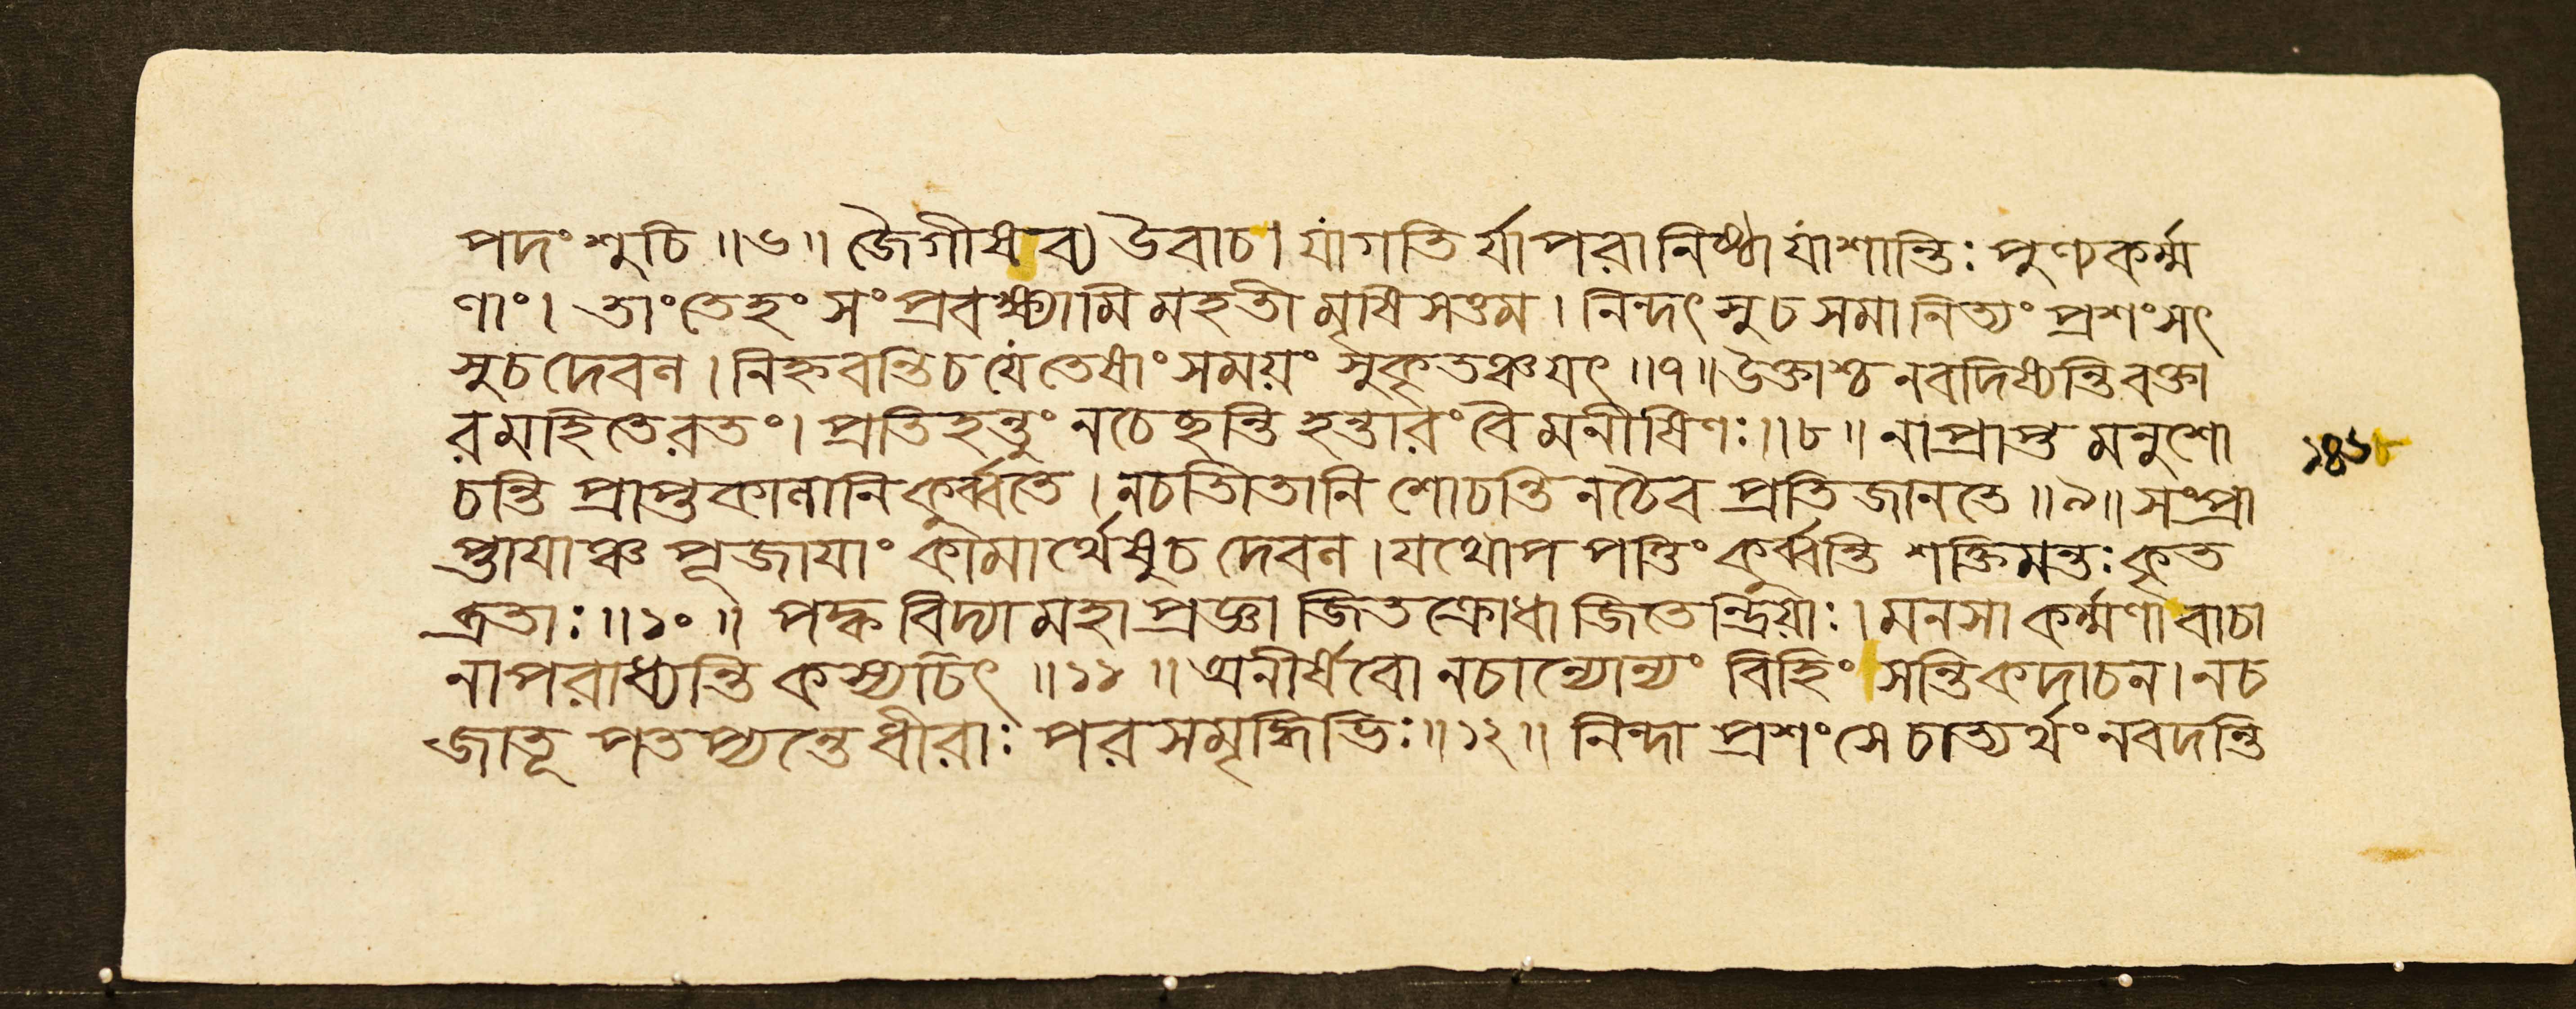 পদং শুচি ॥৬॥ জৈগীষব্য উবাচ। যাংগতি র্যাপরা নিষ্ঠা যাংশান্তিঃ পুণ্যকর্ম্ম
ণাং। তাংতেহং সংপ্রবক্ষ্যামি মহতী মৃষিসত্তম। নিন্দৎ সুচ সমা নিত্যং প্রশংসৎ
সুচ দেবল। নিহ্নবন্তি চ যে তেষাং সময়ং সুকৃতঞ্চযৎ ॥৭॥ উক্তাশ্চ নবদিষ্যন্তি বক্তা
রমহিতেরতং। প্রতিহন্তুং নচেছন্তি হন্তারং বৈ মনীষিণঃ॥৮॥ নাপ্রাপ্ত মনুশো
চন্তি প্রাপ্তকালানি কুর্ব্বতে। নচাতীতানি শোচন্তি নচৈব প্রতি জানতে ॥৯॥ সংপ্রা
প্তাযাঞ্চ পূজাযাং কামার্থেষুচ দেবল। যথোপ পত্তিং কুর্ব্বন্তি শক্তিমন্তঃ কৃত
ব্রতাঃ॥১০॥ পক্ক বিদ্যা মহা প্রজ্ঞা জিতক্রোধা জিতেন্দ্রিয়াঃ। মনসা কর্ম্মণা বাচা
নাপরাধ্যন্তি কস্যচিৎ ॥১১॥ অনীর্ষবো নচান্যোন্যং বিহিংসন্তি কদাচন। নচ
জাতূ পতপ্যন্তে ধীরাঃ পর সমৃদ্ধিভিঃ॥১২॥ নিন্দা প্রশংসে চাত্যর্থং নবদন্তি